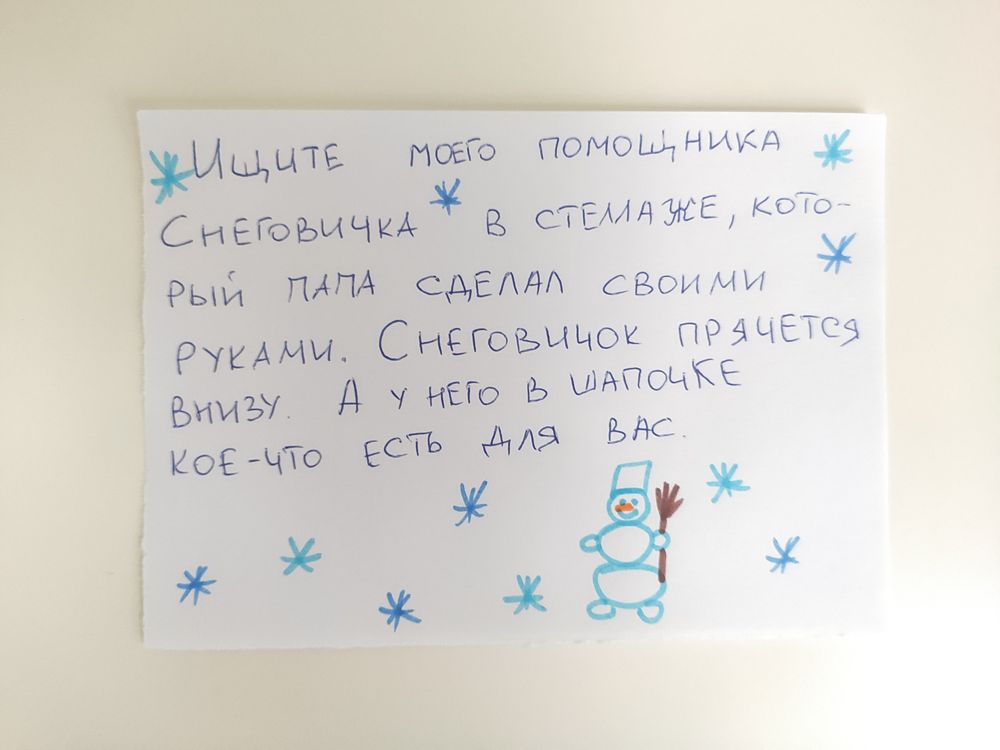 Ищите моего помощника
Снеговичка в стеллаже, кото-
рый папа сделал своими
руками. Снеговичок прячется
внизу. А у него в шапочке
кое-что есть для вас.